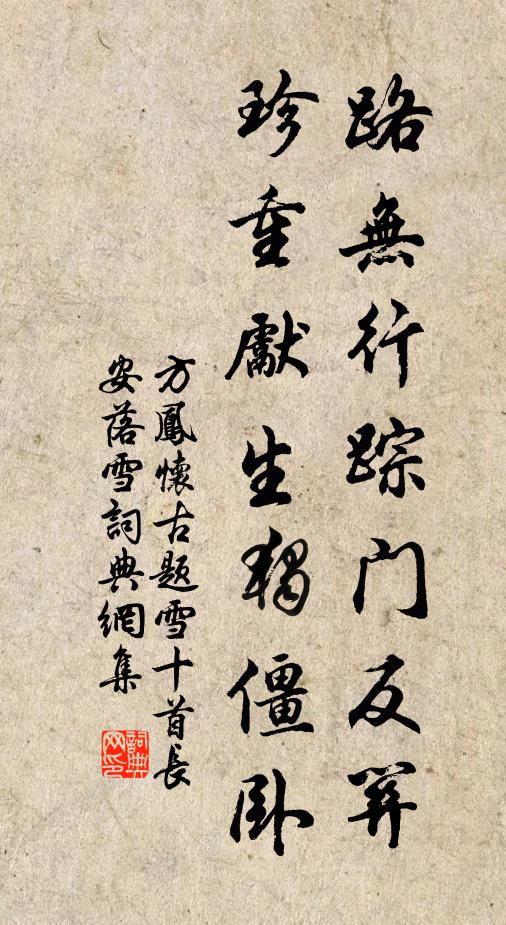 路無行踪门反关
珍重獻生獨僵卧
方鳳懷古題雪十首長
安落雪詞典網集
詞典网印